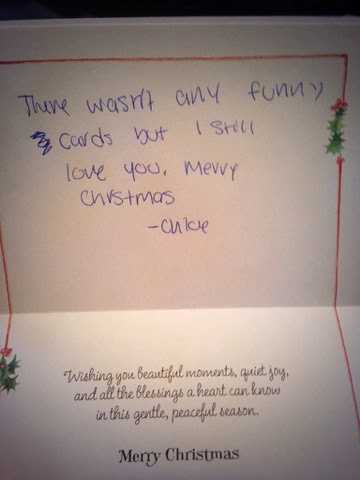 There wasn't any funny
cards but I still
love you. Merry
Chrstmas
-Chloe
Wishing you beautiful moments, quiet joy,
and all the blessings a heart can know
in this gentle, peaceful season.
Merry Christmas